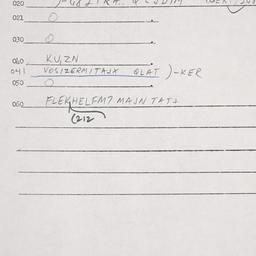 020
021 O
030 O
040 KU,ZN
041 VOSIZERMITAJX QLAT )-KER
050 O
060 FLEKHELFM? MAJN TAT+
(212